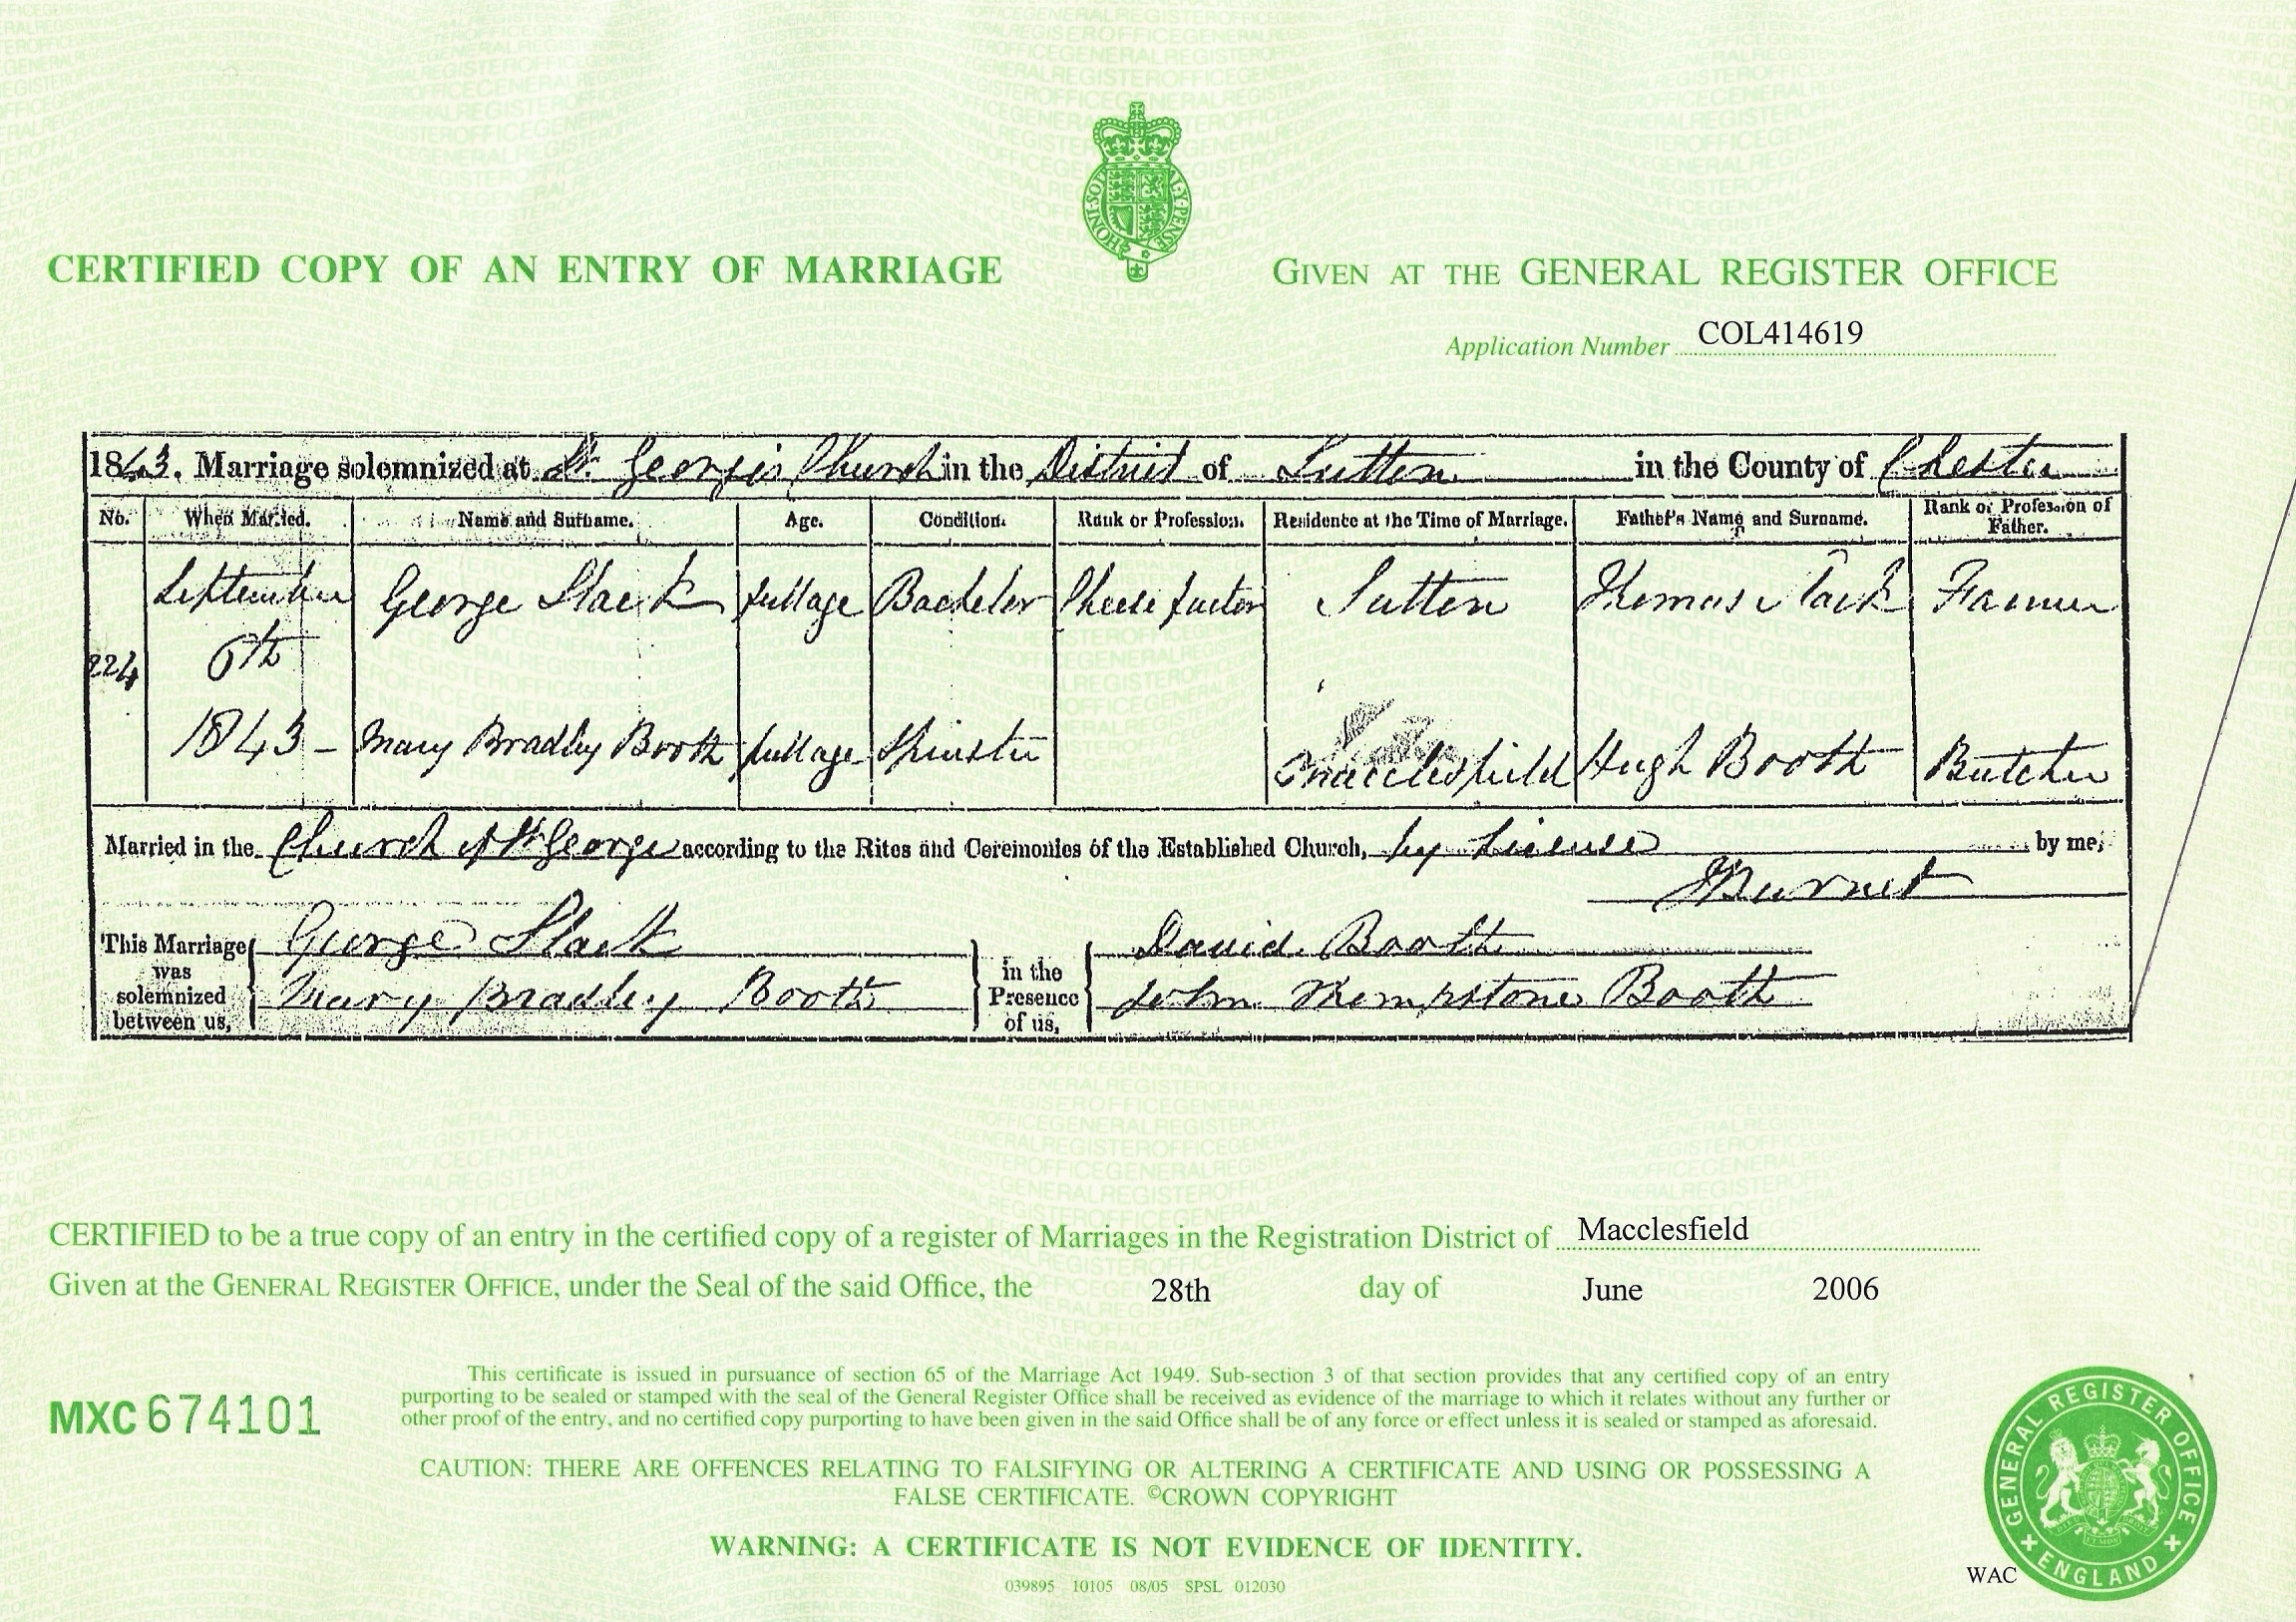 CERTIFIED COPY OF AN ENTRY OF MARRIAGE
GIVEN AT THE GENERAL REGISTER OFFICE
Application Number COL414619
1843. Marriage solemnized at St. George's Church in the District of Sutton in the County of Chester
No. When Married. Name and Surname. Age. Condition. Rank or Profession. Residence at the Time of Marriage. Father's Name and Surname. Rank or Profession of Father.
224
September 6th 1843 -
George Slack full age Bachelor Cheese factor Sutton Thomas Slack Farmer
Mary Bradley Booth full age Spinster Macclesfield Hugh Booth Butcher
Married in the Church of St George according to the Rites and Ceremonies of the Established Church, by License by me,
Burnet
This Marriage was solemnized between us,
George Slack
Mary Bradley Booth
in the Presence of us,
David Booth
John Booth
CERTIFIED to be a true copy of an entry in the certified copy of a register of Marriages in the Registration District of Macclesfield
Given at the GENERAL REGISTER OFFICE, under the Seal of the said Office, the 28th day of June 2006
MXC 674101
This certificate is issued in pursuance of section 65 of the Marriage Act 1949. Sub-section 3 of that section provides that any certified copy of an entry
purporting to be sealed or stamped with the seal of the General Register Office shall be received as evidence of the marriage to which it relates without any further or
other proof of the entry, and no certified copy purporting to have been given in the said Office shall be of any force or effect unless it is sealed or stamped as aforesaid.
CAUTION: THERE ARE OFFENCES RELATING TO FALSIFYING OR ALTERING A CERTIFICATE AND USING OR POSSESSING A
FALSE CERTIFICATE. ©CROWN COPYRIGHT
WARNING: A CERTIFICATE IS NOT EVIDENCE OF IDENTITY.
039895 10105 08/05 SPSL 012030
WAC
GENERAL REGISTER OFFICE
ENGLAND